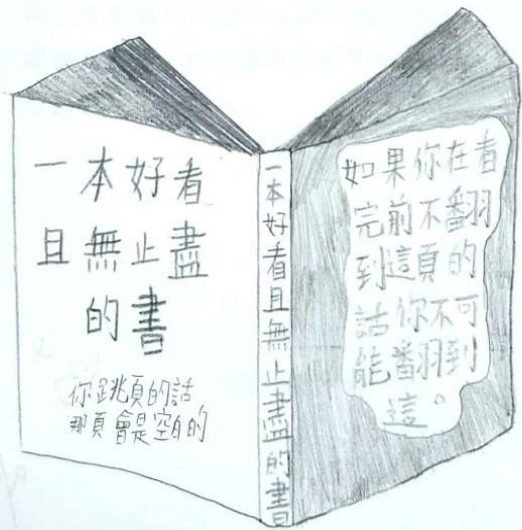 一本好看
且無止盡
的書
你跳頁的話
那頁會是空白的
一本好看且無止盡的書
如果你在看
完前不翻
到這頁的
話你不可
能翻到
這。